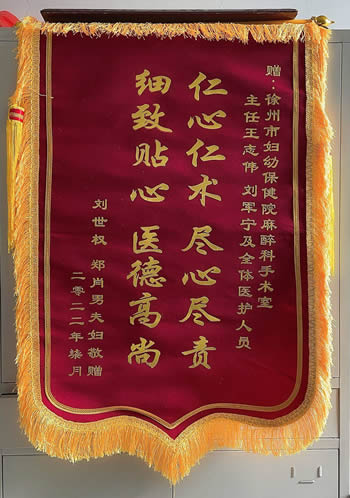 赠：徐州市妇幼保健院麻醉科手术室
主任王志伟 刘军宁及全体医护人员
仁心仁术 尽心尽责
细致贴心 医德高尚
刘世权 郑肖男夫妇敬赠
二零二二年柒月